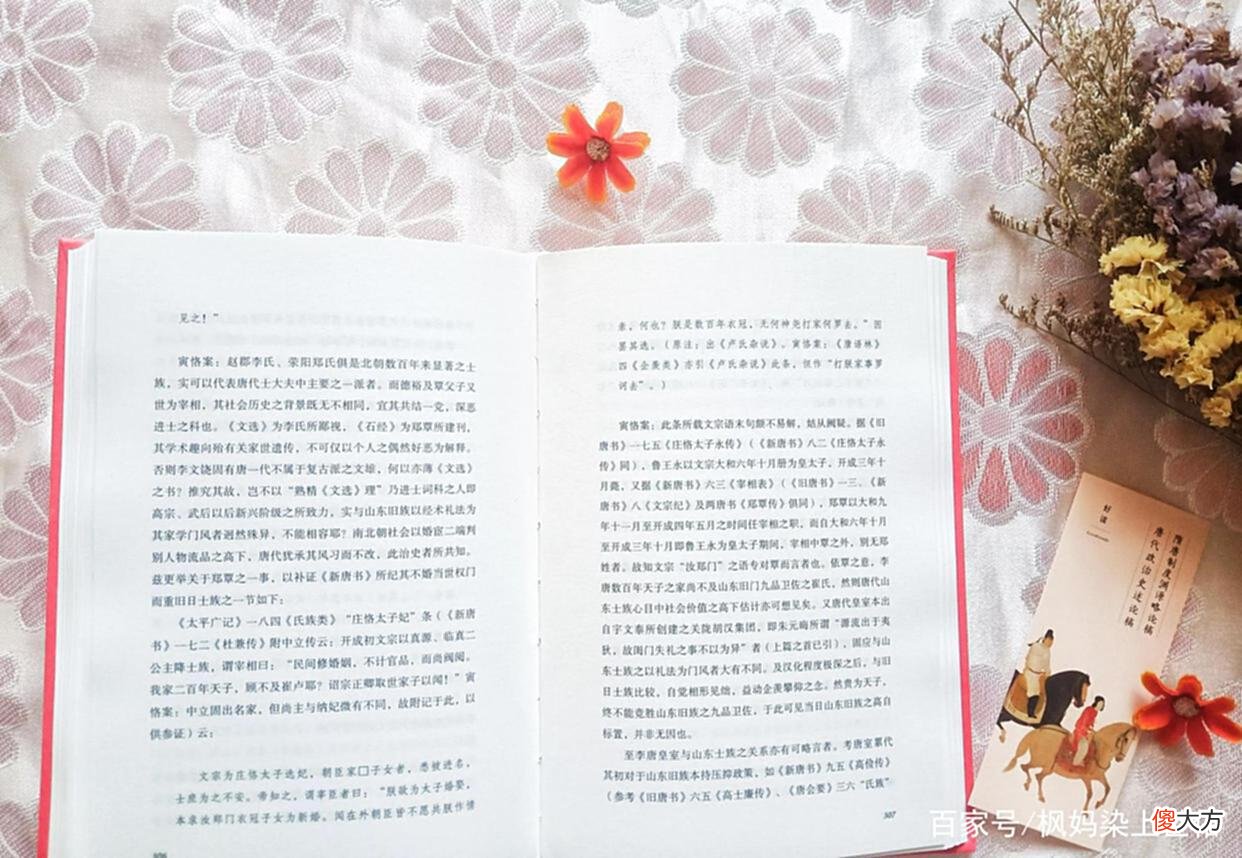 见之！”
寅恪案：赵郡李氏、荥阳郑氏俱是北朝数百年来显著之士
族，实可以代表唐代士大夫中主要之一派者。而德裕及覃父子又
世为宰相，其社会历史之背景既无不相同，宜其共结一党，深恶
进士之科也。《文选》为李氏所鄙视，《石经》为郑覃所建刊，
其学术趣向殆有关家世遗传，不可仅以个人之偶然好恶为解释。
否则李文饶固有唐一代不属于复古派之文雄，何以亦薄《文选》
之书？推究其故，岂不以“熟精《文选》理”乃进士词科之人即
高宗、武后以后新兴阶级之所致力，实与山东旧族以经术礼法为
其家学门风者迥然殊异，不能相容耶？南北朝社会以婚宦二端判
别人物流品之高下，唐代犹承其风习而不改，此治史者所共知。
兹更举关于郑覃之一事，以补证《新唐书》所纪其不婚当世权门
而重旧日士族之一节如下：
《太平广记》一八四《氏族类》“庄恪太子妃”条（《新唐
书》一七二《杜兼传》附中立传云：开成初文宗以真源、临真二
公主降士族，谓宰相曰：“民间修婚姻，不计官品，而尚阀阅。
我家二百年天子，顾不及崔卢耶？诏宗正卿取世家子以闻！”寅
恪案：中立固出名家，但尚主与纳妃微有不同，故附记于此，以
供参证）云：
文宗为庄恪太子选妃，朝臣家□子女者，悉被进名，
士庶为之不安。帝知之，谓宰臣曰：“朕欲为太子婚娶，
本求汝郑门衣冠子女为新婚。闻在外朝臣皆不愿共朕作情
306
亲，何也？朕是数百年衣冠，无何神尧打家何罗去。”因
罢其选。（原注：出《卢氏杂说》。寅恪案：《唐语林》
四《企羡类》亦引《卢氏杂说》此条，但作“打朕家事罗
诃去”。）
寅恪案：此条所载文宗语末句颇不易解，姑从阙疑。据《旧
唐书》一七五《庄恪太子永传》（《新唐书》八二《庄恪太子永
传》同），鲁王永以文宗大和六年十月册为皇太子，开成三年十
月薨，又据《新唐书》六三《宰相表》（《旧唐书》一三、《新
唐书》八《文宗纪》及两唐书《郑覃传》俱同），郑覃以大和九
年十一月至开成四年五月之时间任宰相之职，而自大和六年十月
至开成三年十月即鲁王永为皇太子期间，宰相中覃之外，别无郑
姓者。故知文宗“汝郑门”之语专对覃而言者也。依覃之意，李
唐数百年天子之家尚不及山东旧门九品卫佐之崔氏，然则唐代山
东士族心目中社会价值之高下估计亦可想见矣。又唐代皇室本出
自宇文泰所创建之关陇胡汉集团，即朱元晦所谓“源流出于夷
狄，故闺门失礼之事不以为异”者（上篇之首已引），固应与山
东士族之以礼法为门风者大有不同。及汉化程度极深之后，与旧
日士族比较，自觉相形见绌，益动企羡攀仰之念。然贵为天子，
终不能竞胜山东旧族之九品卫佐，于此可见当日山东旧族之高自
标置，并非无因也。
至李唐皇室与山东士族之关系亦有可略言者。考唐室累代
其初对于山东旧族本持压抑政策，如《新唐书》九五《高俭传》
（参考《旧唐书》六五《高士廉传》、《唐会要》三六“氏族”
307
隋唐制度渊源略论稿
唐代政治史述论稿
好读
百家号/枫妈染上
傻大方